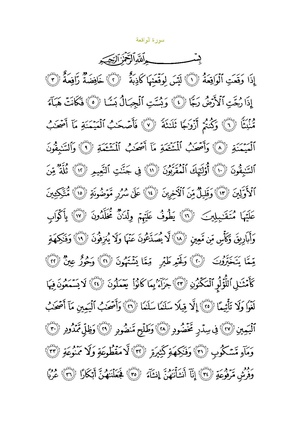 سورة الواقعة
بِسْمِ ٱللَّهِ ٱلرَّحْمَٰنِ ٱلرَّحِيمِ
إِذَا وَقَعَتِ ٱلْوَاقِعَةُ ١ لَيْسَ لِوَقْعَتِهَا كَاذِبَةٌ ٢ خَافِضَةٌ رَّافِعَةٌ ٣
إِذَا رُجَّتِ ٱلْأَرْضُ رَجًّا ٤ وَبُسَّتِ ٱلْجِبَالُ بَسًّا ٥ فَكَانَتْ هَبَآءً
مُّنۢبَثًّا ٦ وَكُنتُمْ أَزْوَٰجًا ثَلَٰثَةً ٧ فَأَصْحَٰبُ ٱلْمَيْمَنَةِ مَآ أَصْحَٰبُ
ٱلْمَيْمَنَةِ ٨ وَأَصْحَٰبُ ٱلْمَشْـَٔمَةِ مَآ أَصْحَٰبُ ٱلْمَشْـَٔمَةِ ٩ وَٱلسَّٰبِقُونَ
ٱلسَّٰبِقُونَ ١٠ أُو۟لَٰٓئِكَ ٱلْمُقَرَّبُونَ ١١ فِى جَنَّٰتِ ٱلنَّعِيمِ ١٢ ثُلَّةٌ مِّنَ
ٱلْأَوَّلِينَ ١٣ وَقَلِيلٌ مِّنَ ٱلْءَاخِرِينَ ١٤ عَلَىٰ سُرُرٍ مَّوْضُونَةٍ ١٥ مُّتَّكِـِٔينَ
عَلَيْهَا مُتَقَٰبِلِينَ ١٦ يَطُوفُ عَلَيْهِمْ وِلْدَٰنٌ مُّخَلَّدُونَ ١٧ بِأَكْوَابٍ
وَأَبَارِيقَ وَكَأْسٍ مِّن مَّعِينٍ ١٨ لَّا يُصَدَّعُونَ عَنْهَا وَلَا يُنزِفُونَ ١٩ وَفَٰكِهَةٍ
مِّمَّا يَتَخَيَّرُونَ ٢٠ وَلَحْمِ طَيْرٍ مِّمَّا يَشْتَهُونَ ٢١ وَحُورٌ عِينٌ ٢٢
كَأَمْثَٰلِ ٱللُّؤْلُؤِ ٱلْمَكْنُونِ ٢٣ جَزَآءًۢ بِمَا كَانُوا۟ يَعْمَلُونَ ٢٤ لَا يَسْمَعُونَ فِيهَا
لَغْوًا وَلَا تَأْثِيمًا ٢٥ إِلَّا قِيلًا سَلَٰمًا سَلَٰمًا ٢٦ وَأَصْحَٰبُ ٱلْيَمِينِ مَآ أَصْحَٰبُ
ٱلْيَمِينِ ٢٧ فِى سِدْرٍ مَّخْضُودٍ ٢٨ وَطَلْحٍ مَّنضُودٍ ٢٩ وَظِلٍّ مَّمْدُودٍ ٣٠
وَمَآءٍ مَّسْكُوبٍ ٣١ وَفَٰكِهَةٍ كَثِيرَةٍ ٣٢ لَّا مَقْطُوعَةٍ وَلَا مَمْنُوعَةٍ ٣٣
وَفُرُشٍ مَّرْفُوعَةٍ ٣٤ إِنَّآ أَنشَأْنَٰهُنَّ إِنشَآءً ٣٥ فَجَعَلْنَٰهُنَّ أَبْكَارًا ٣٦ عُرُبًا